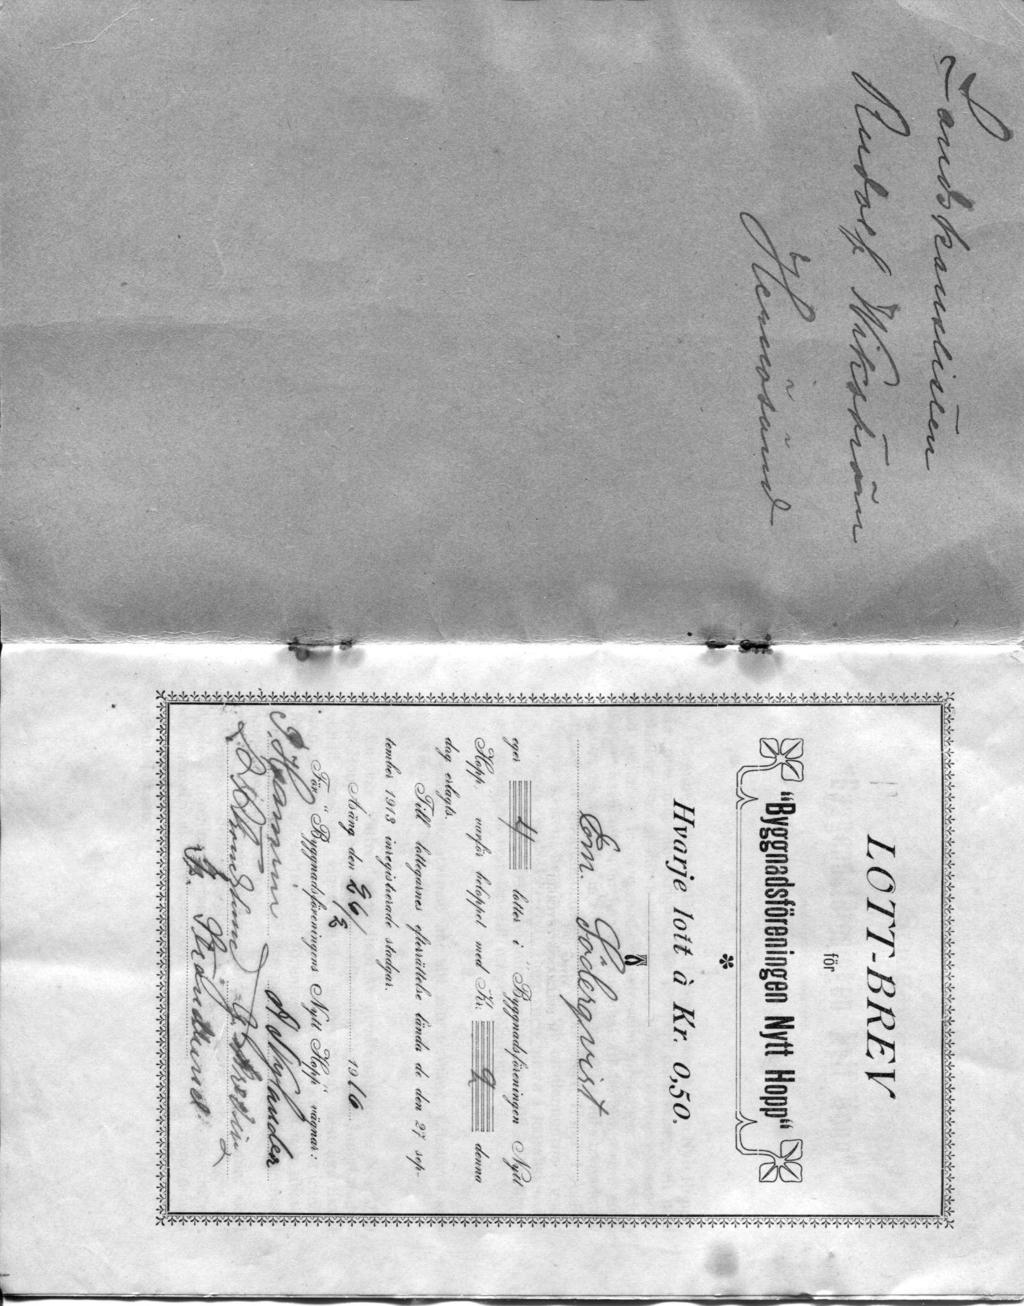 Landskanslisten
Rudolf Wikström
Hernösand
LOTT-BREV
för
"Byggnadsföreningen Nytt Hopp"
*
Hvarje lott à Kr. 0,50.
Em. Södergvist
eger 4 lotter i "Byggnadsföreningen Nytt
Hopp", varför beloppet med Kr. 2 denna
dag erlagts.
Till lottegarnes efterrättelse lända de den 27 sep-
tember 1913 inregistrerade stadgar.
Näng den 26/2 1916
För "Byggnadsföreningens Nytt Hopp" vägnar:
A Nylander
Strömlund